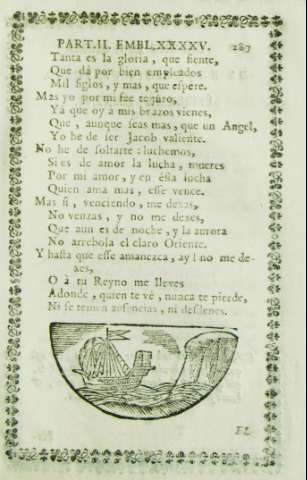 PART. II. EMBL. XXXXV. 287
Tanta es la gloria, que siente,
Que dá por bien empleados
Mil siglos, y mas, que espere.
Mas yo por mi fee te juro,
Yá que oy à mis brazos vienes,
Que, aunque seas mas, que un Angel,
Yo he de ser Jacob valiente.
No he de soltarte: luchemos,
Si es de amor la lucha, mueres
Por mi amor, y en esta lucha
Quien ama mas, esse vence.
Mas si, venciendo, me dexas,
No venzas, y no me dexes,
Que aun es de noche, y la aurora
No arrebola el claro Oriente.
Y hasta que esse amanezca, ay! no me de-
xes,
O à tu Reyno me lleves
Adonde, quien te vé, nunca te pierde,
Ni se temen ausencias, ni desdenes.
EL